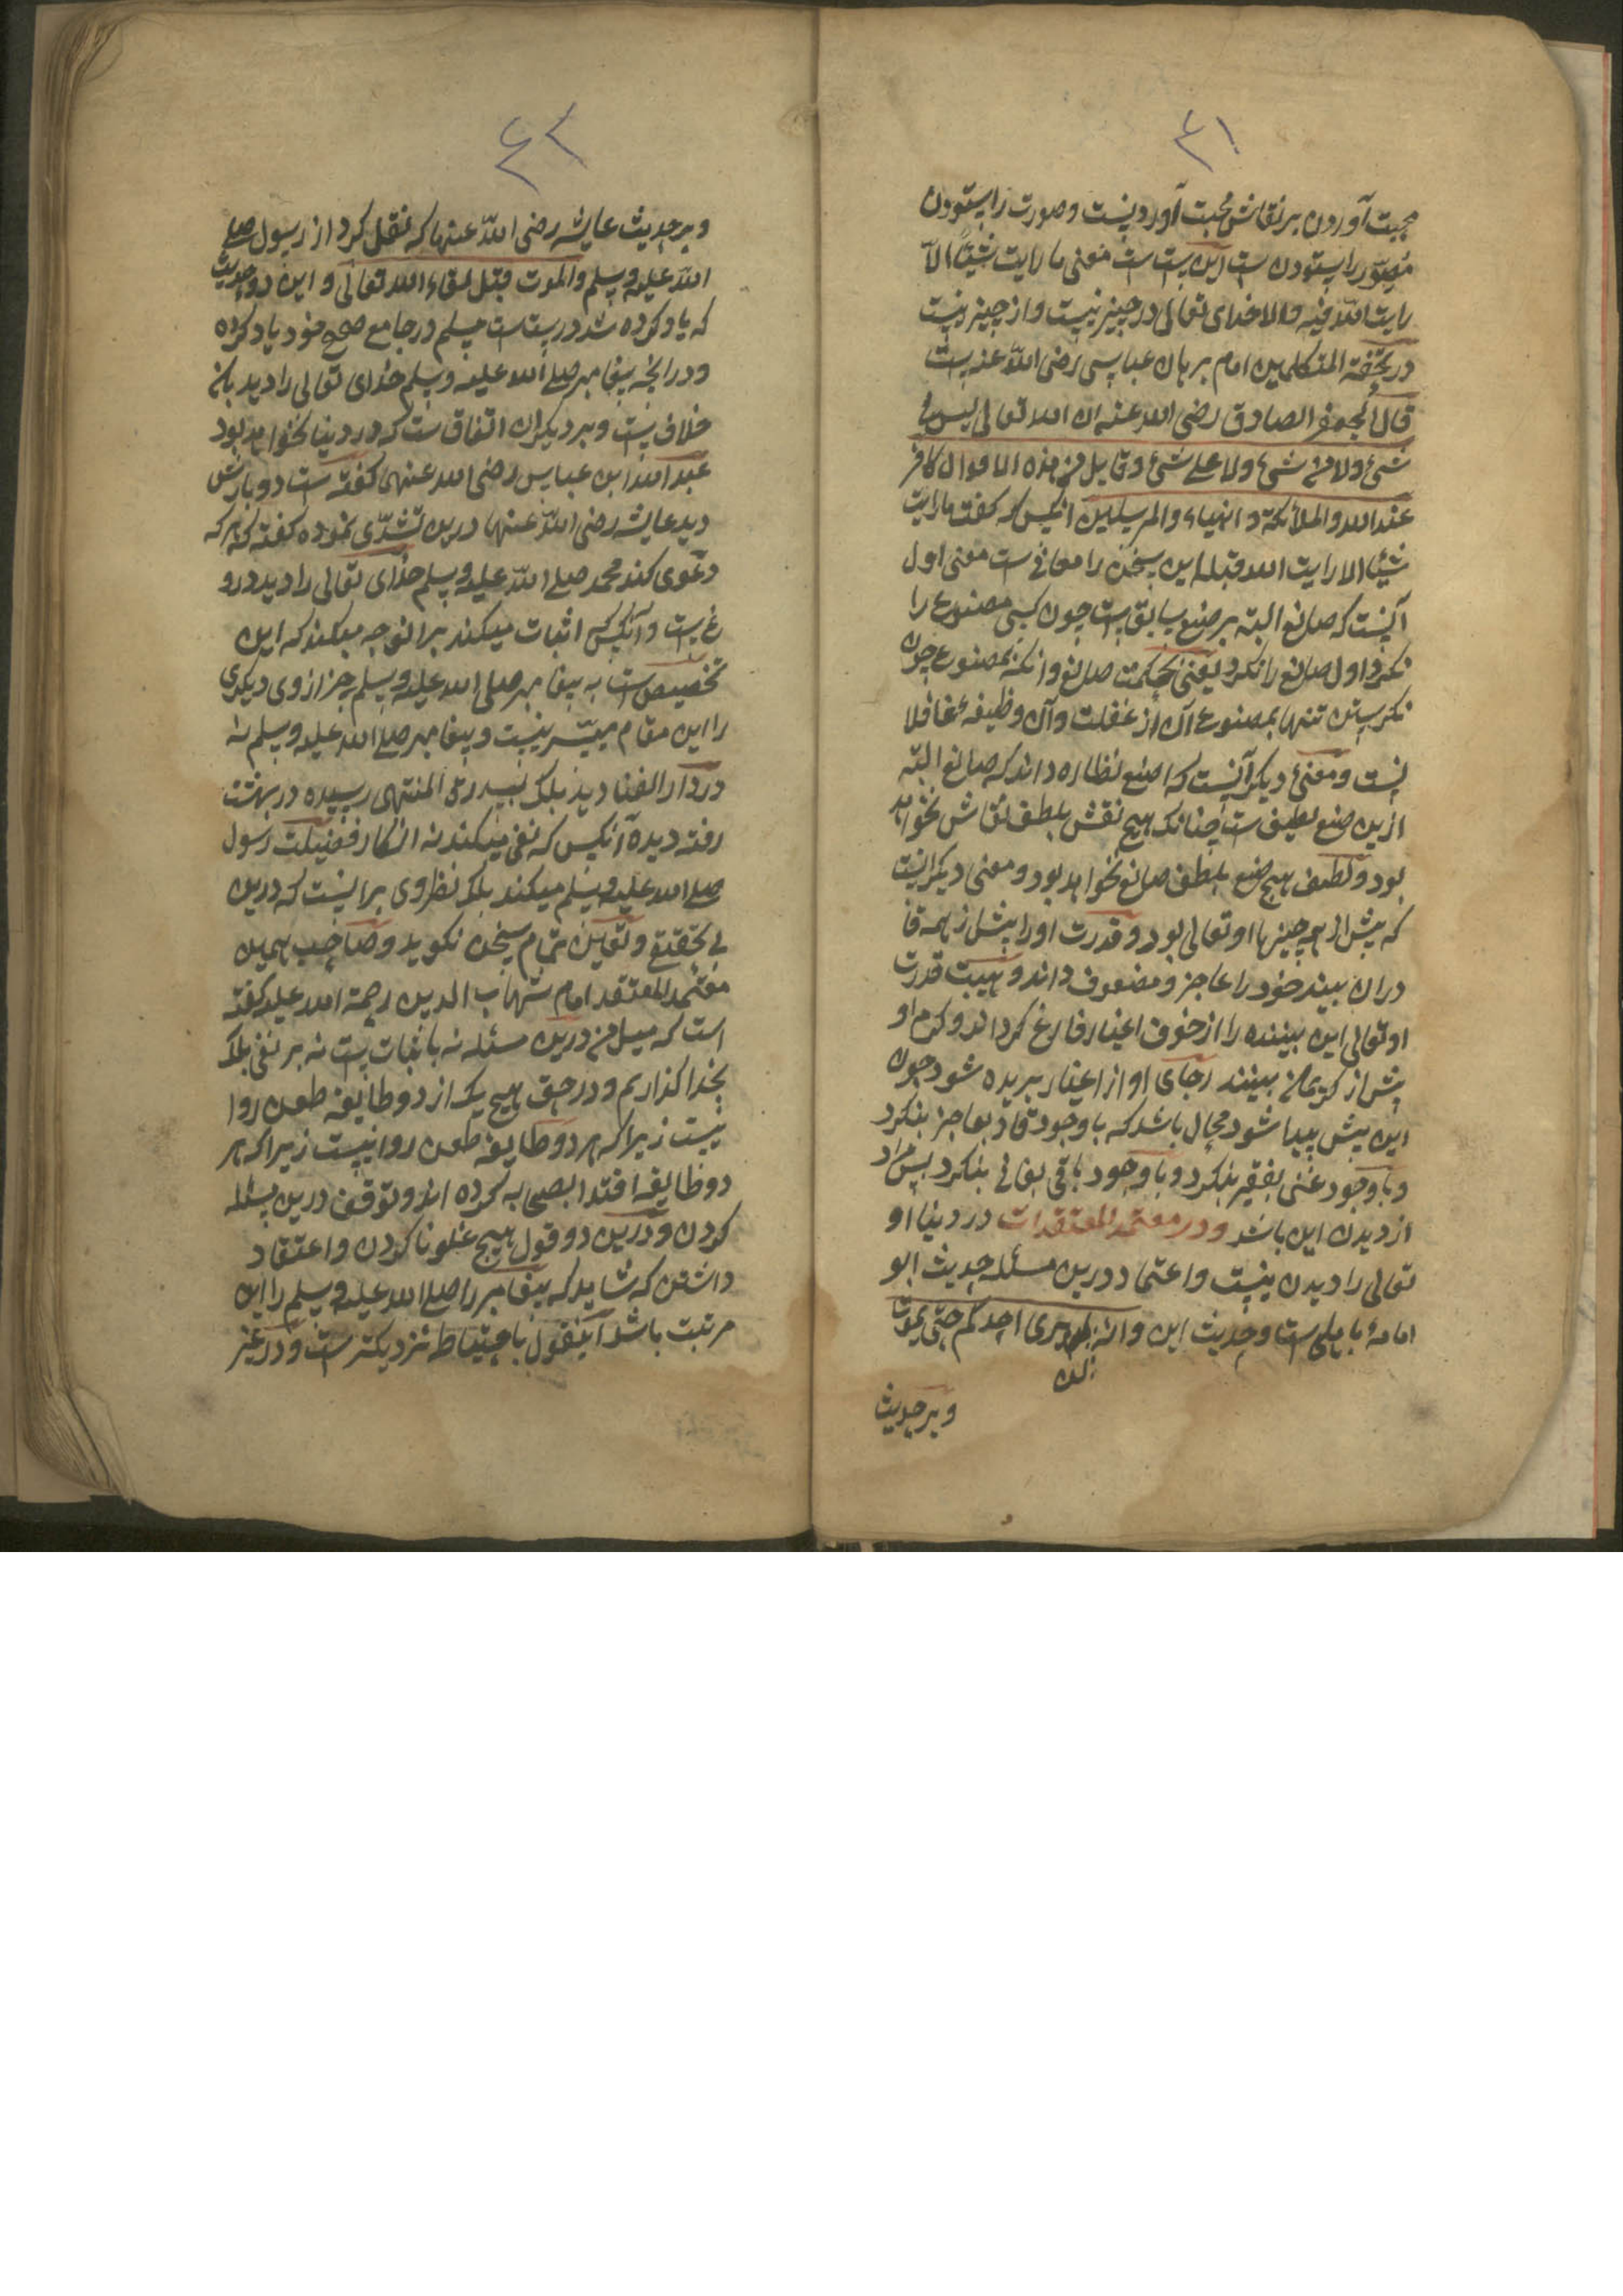 ۴۱
محبت آوردن بر نقاش محبت آوردنیست و صورت را ستودن
مصور را ستودن ست این ست معنی ما رایت شیئا الا
رایت الله فیه والا خدای تعالی در چیز نیست و از چیز نیست
در تحفة المتکلمین امام برهان عباسی رضی الله عنه ست
قال جعفر الصادق رضی الله عنه ان الله تعالی لیس فی
شیء ولا من شیء ولا علی شیء و قایل من هذه الاقوال کافر
عند الله والملائکة و انبیاء والمرسلین انکس که گفت ما رایت
شیئا الا رایت الله قبله این سخن را معانی ست معنی اول
آنست که صانع البته بر صنع سابق ست چون کسی مصنوع را
نکرد اول صانع را نکرد یعنی بحکمت صانع وانکه بمصنوع چون
نکرستن تنها بمصنوع آن از غفلت و آن وظیفه غافلا
نست و معنی دیکر آنست که اصنع نظاره داند که صانع البته
ازین صنع لطیف ست چنانک هیچ نقش بلطف نقاش نخواهد
بود و لطف هیچ صنع بلطف صانع نخواهد بود و معنی دیکر انست
که پیش از همه چیزها او تعالی بود و قدرت او را پیش از همه قا
دران بیند خود را عاجز و مضعوف داند و هیبت قدرت
او تعالی این بیننده را از خوف اغیار فارغ کرداند و کرم او
پیش از کریمان بینند رجای او از اغیار بریده شود چون
این پیش پیدا شود محال باشد که با وجود قادر بعاجز بنکرد
و با وجود غنی بفقیر بنکرد و با وجود باقی بفانی بنکرد پس مراد
از دیدن این باشد و در معتمد المعتقدات در دنیا او
تعالی را دیدن نیست و اعتماد درین مسئله حدیث ابو
امامه باهلی ست و حدیث این وانه لن یری احدکم حتی یموت
و بر حدیث
۴۲
و بر حدیث عایشه رضی الله عنها که نقل کرد از رسول صلی
الله علیه وسلم والموت قبل لقاء الله تعالی و این دو حدیث
که یاد کرده شد درست ست مسلم در جامع صحیح خود یاد کرده
و در انچه پیغامبر صلی الله علیه وسلم خدای تعالی را دید یا نه
خلاف ست و بر دیکران اتفاق ست که در دنیا نخواهد بود
عبد الله ابن عباس رضی الله عنهما گفته ست دو بارش
دید عایشه رضی الله عنها درین تشدّی نموده گفته که هر که
دعوی کند محمد صلی الله علیه وسلم خدای تعالی را دید درو
غ ست و آنکس که اثبات میکند بر انوجه میکند که این
تخصیص ست به پیغامبر صلی الله علیه وسلم جز از وی دیکری
را این مقام میسّر نیست و پیغامبر صلی الله علیه وسلم نه
در دار الفنا دید بلک بسدرة المنتهی رسیده در بهشت
رفته دیده آنکس که نفی میکند نه انکار فضیلت رسول
صلی الله علیه وسلم میکند بلک نظر وی برانست که درین
بی تحقیق و یقین تمام سخن نکوید و صاحب همین
معتمد المعتقد امام شهاب الدین رحمة الله علیه گفته
است که میل من درین مسئله نه باثبات ست نه بر نفی بلک
بخدا گذاریم و در حق هیچ یک از دو طایفه طعن روا
نیست زیرا که هر دو طایفه طعن روا نیست زیرا که هر
دو طایفه اقتدا بصحابه کرده اند و توقف درین مسئله
کردن و درین دو قول هیچ غلو نا کردن و اعتقاد
داشتن که شاید که پیغامبر را صلی الله علیه وسلم را این
مرتبت باشد اینقول باحتیاط نزدیکتر ست و در غیر